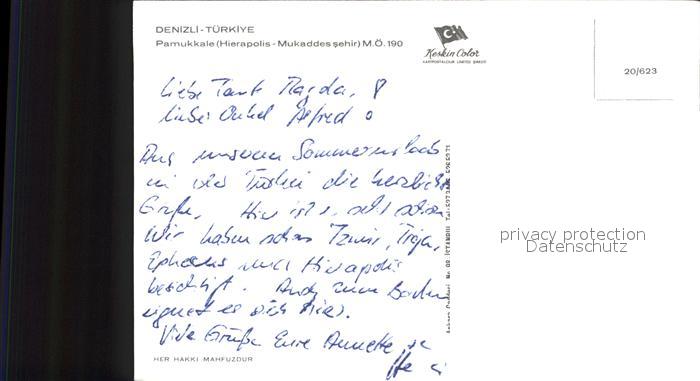 DENIZLİ - TÜRKİYE
Pamukkale (Hierapolis - Mukaddes şehir) M.Ö. 190
Keskin Color
KARTPOSTALCILIK LIMITED ŞİRKETİ
20/623
Liebe Tante Magda,
Lieber Onkel Alfred!
Aus unserem Sommerurlaub
in der Türkei die herzlichsten
Grüße. Hier ist es sehr schön.
Wir haben schon Izmir, Troja,
Ephesus und Hierapolis
besichtigt. Auch zum Baden
eignet es sich hier.
Viele Grüße Eure Annette
HER HAKKI MAHFUZDUR
Ankara Caddesi No. 98 İSTANBUL
privacy protection
Datenschutz